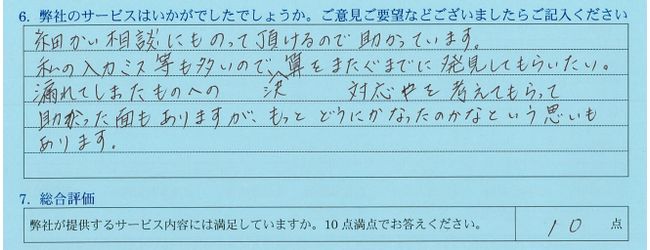 6. 弊社のサービスはいかがでしたでしょうか。ご意見ご要望などございましたらご記入ください
細かい相談にものって頂けるので助かっています。
私の入力ミス等も多いので、決算をまたぐまでに発見してもらいたい。
漏れてしまったものへの 対応やを考えてもらって
助かった面もありますが、もっとどうにかなったのかなという思いも
あります。
7. 総合評価
弊社が提供するサービス内容には満足していますか。10点満点でお答えください。 10 点